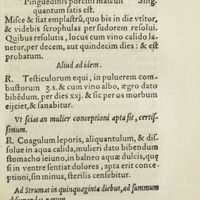 Pinguedinis porcini masculi Sing.
quantum satis est.
Misce & fiat emplastrũ, quo bis in die vtitor,
& videbis scrophulas per sudorem resolui.
Quibus resolutis, locus cum vino calido la-
uetur, per decem, aut quindecim dies: & est
probatum.
Aliud ad idem.
R. Testiculorum equi, in puluerem com-
bustorum ʒ.s. & cum vino albo, ægro dato
bibẽdum, per dies xxj. & sic per os morbum
eijciet, & sanabitur.
Vt scias an mulier conceptioni apta sit, certis-
simum.
R. Coagulum leporis, aliquantulum, & dis-
solue in aqua calida, mulieri dato bibendum
stomacho ieiuno, in balneo aquæ dulcis, que
si in ventre sentiat dolores, apta erit conce-
ptioni, sin minus, sterilis censebitur.
Ad Strumas in quinquaginta diebus, ad summum